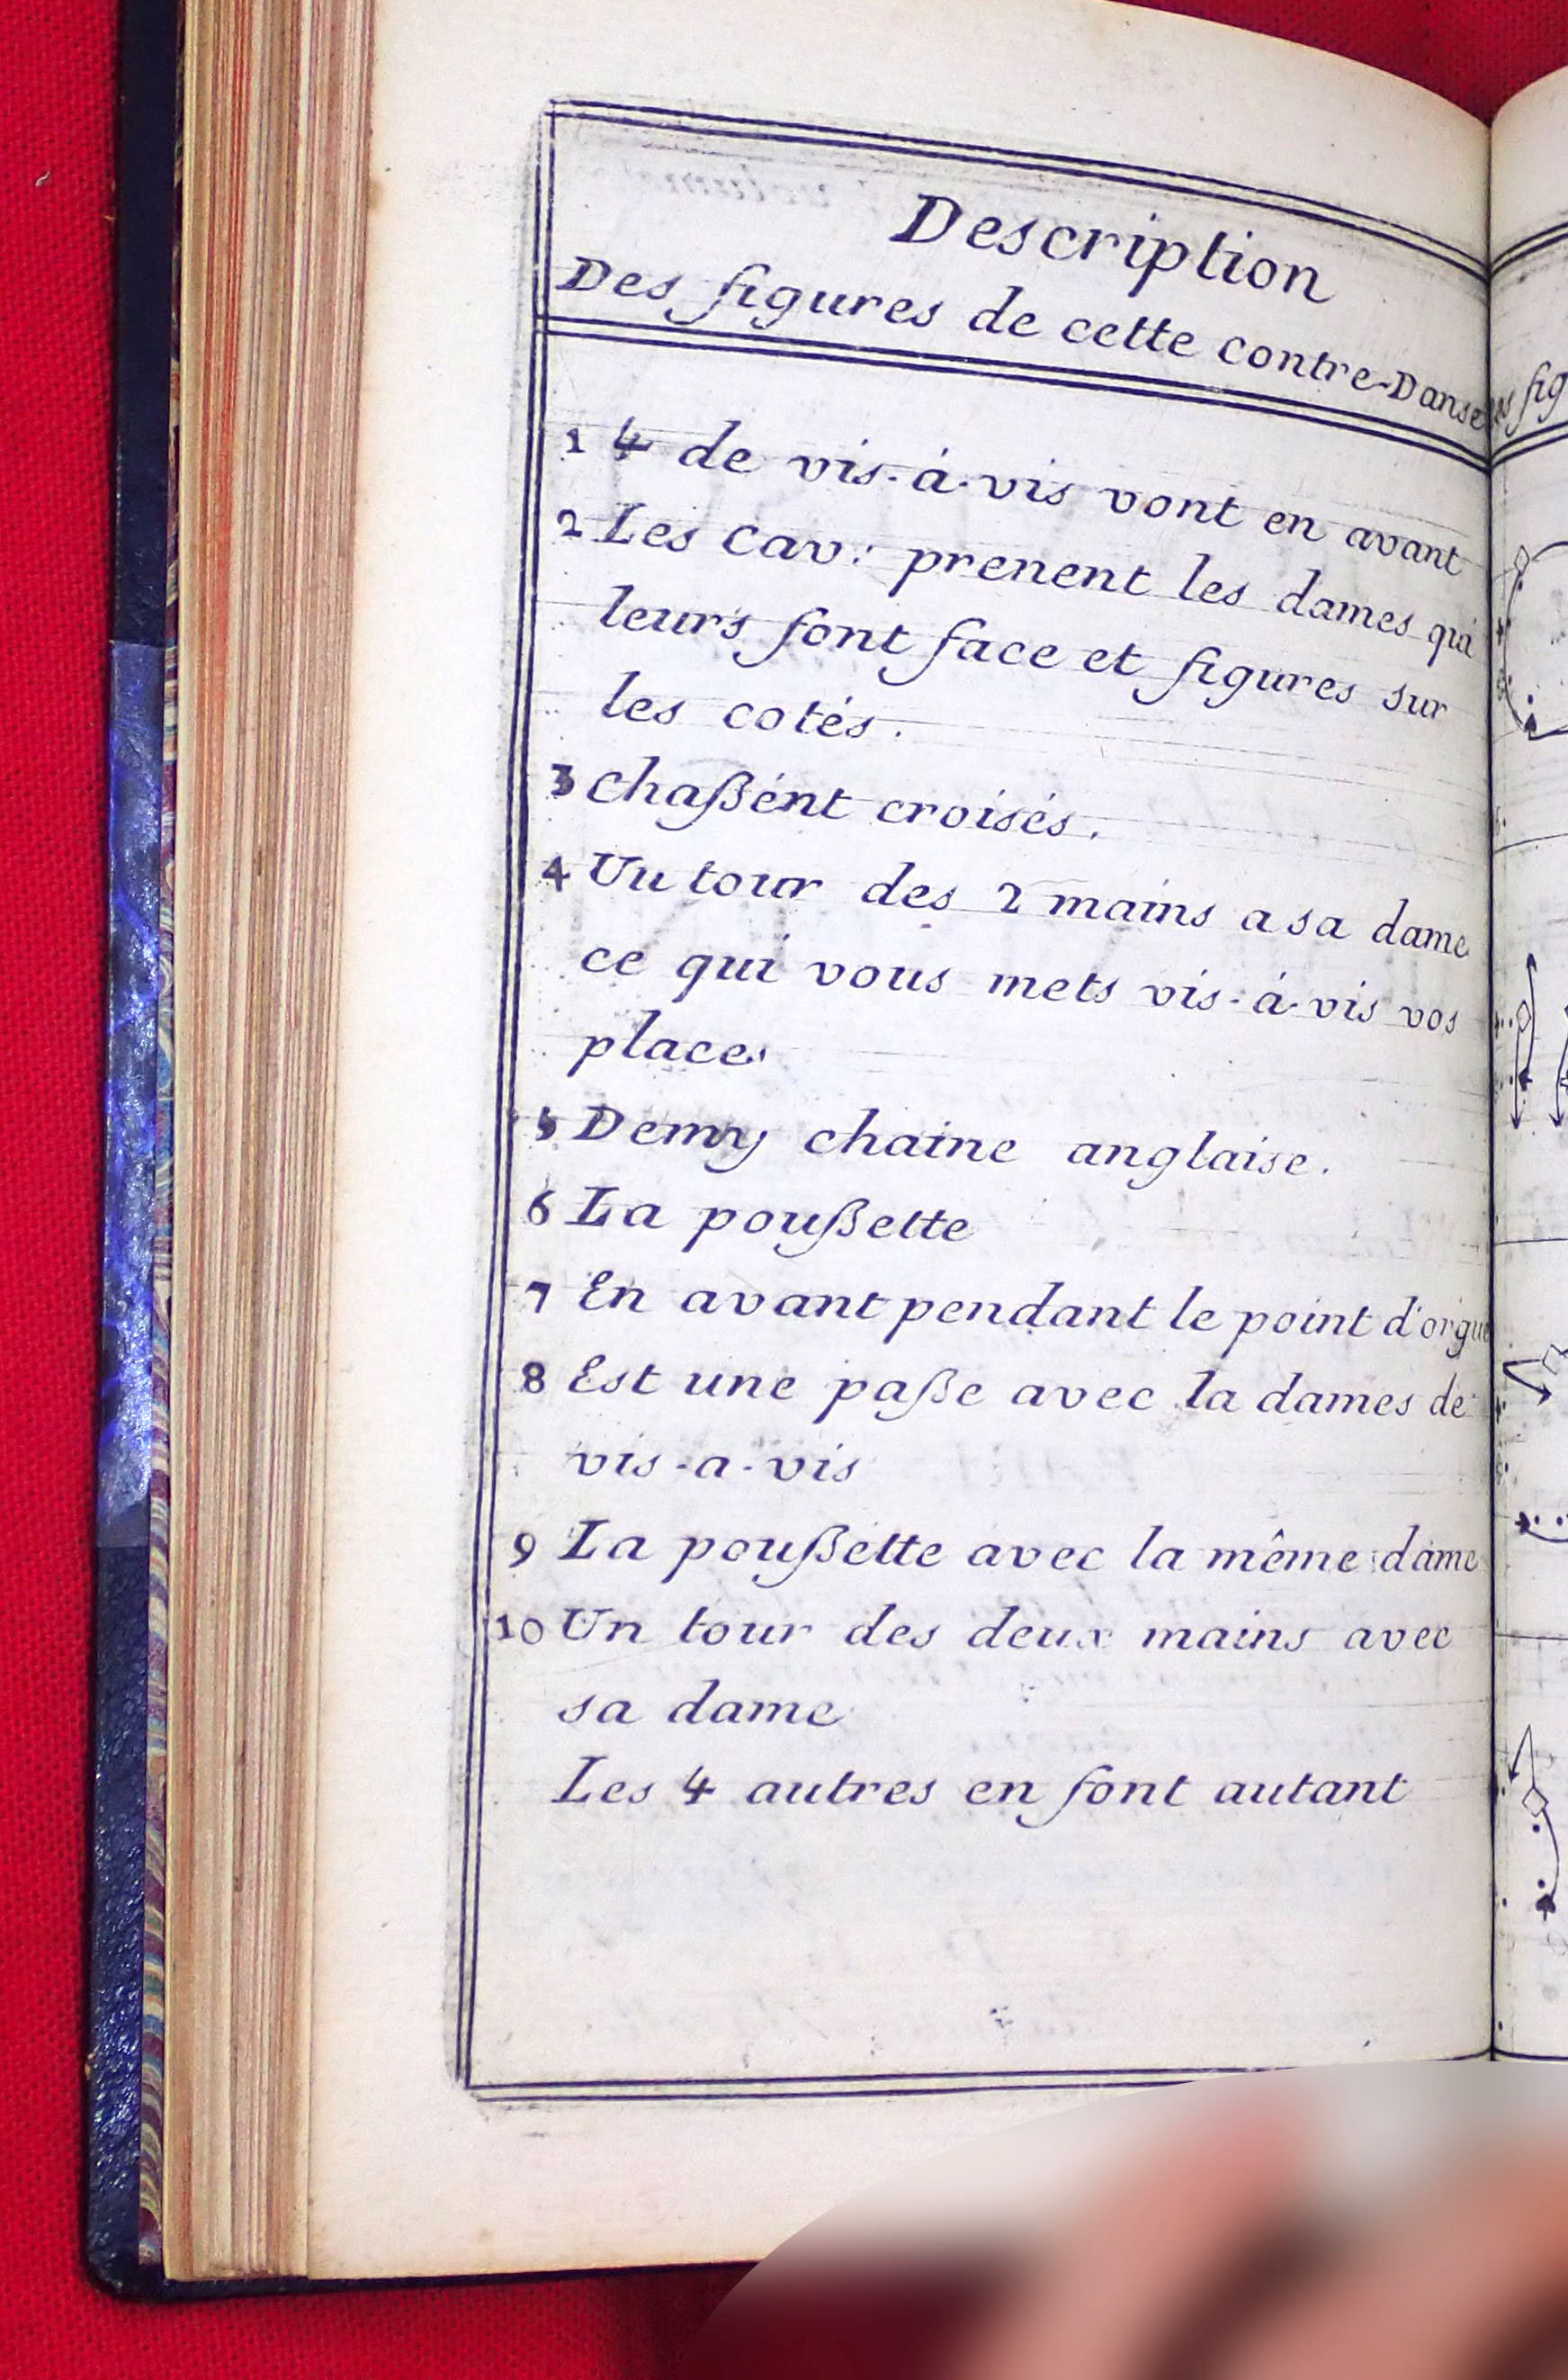 Description
Des figures de cette contre-Danse
1 4 de vis-à-vis vont en avant
2 Les Cav: prenent les dames qui
leurs font face et figures sur
les cotés.
3 chaßént croisés.
4 Un tour des 2 mains a sa dame
ce qui vous mets vis-à-vis vos
places
5 Demy chaine anglaise.
6 La poußette
7 En avant pendant le point d'orgue
8 Est une paße avec la dames de
vis-a-vis
9 La poußette avec la même dame
10 Un tour des deux mains avec
sa dame
Les 4 autres en font autant